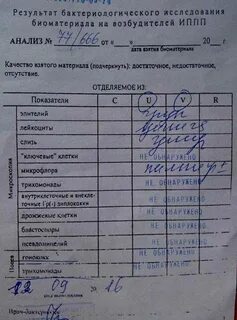 Результат бактериологического исследования
биоматериала на возбудителей ИППП
АНАЛИЗ № 77/666 от « » 20 г.
дата взятия биоматериала
Качество взятого материала (подчеркнуть): достаточное, недостаточное,
отсутствие.
ОТДЕЛЯЕМОЕ ИЗ:
Показатели C U V R
Микроскопия
эпителий
лейкоциты
слизь
"ключевые" клетки НЕ ОБНАРУЖЕНО
микрофлора
трихомонады НЕ ОБНАРУЖЕНО
внутриклеточные и внекле-
точные Гр(-) диплококки НЕ ОБНАРУЖЕНО
дрожжевые клетки НЕ ОБНАРУЖЕНО
бластоспоры НЕ ОБНАРУЖЕНО
псевдомицелий НЕ ОБНАРУЖЕНО
Посев
гонококк НЕ ОБНАРУЖЕНО
трихомонады
12 09 16